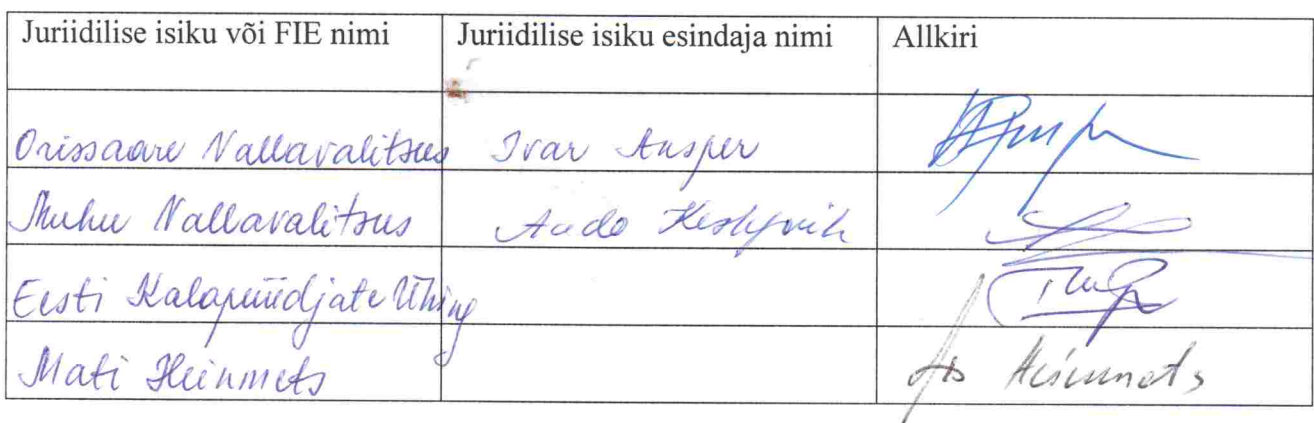 Juriidilise isiku või FIE nimi Juriidilise isiku esindaja nimi Allkiri
Orissaare Vallavalitsus Ivar Ansper
Muhu Vallavalitsus Aado Keskpaik
Eesti Kalapüüdjate Ühing
Mati Heinmets Heinmets